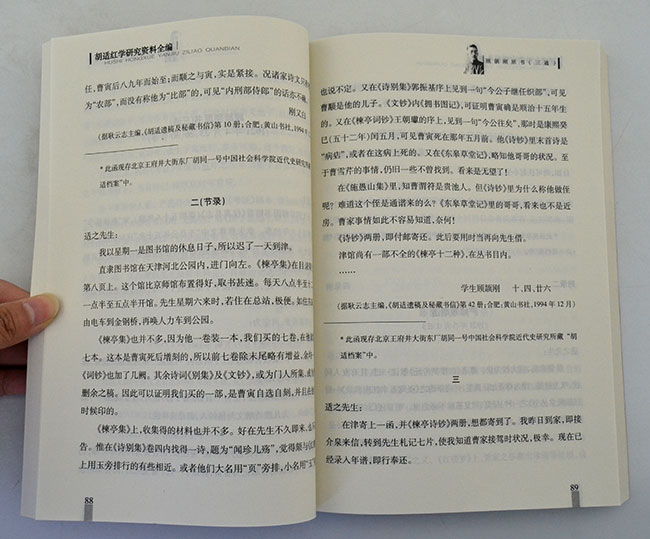 胡适红学研究资料全编
HUSHI HONGXUE YANJIU ZILIAO QUANBIAN
任，曹寅后八九年而始至；而颙之与寅，实是紧接。况诸家诗文只
为“农部”，而没有称他为“比部”的，可见“内刑部侍郎”的话亦不确
刚又白
（据耿云志主编，《胡适遗稿及秘藏书信》第10册；合肥：黄山书社，1994年
* 此函现存北京王府井大街东厂胡同一号中国社会科学院近代史研究所
适档案”中。
二（节录）
适之先生：
我以星期一是图书馆的休息日子，所以迟了一天到津。
直隶图书馆在天津河北公园内，进门向左。《楝亭集》在目录
第八页上。这个馆比京师馆布置得好，取书甚速。每天八点半至十二
一点半至五点半开馆。先生星期六来时，若住在总站，极便。如住
由电车到金钢桥，再唤人力车到公园。
《楝亭集》也并不多，因为他一卷装一本，我们买的七卷，在他
七本。这本是曹寅死后增刻的，所以前七卷除末尾略有增益，余
《词钞》也加了几阙。其余诗词《别集》及《文钞》，或为门人所集，或
删余之稿。因此可以证明我们买的一部，是曹寅自选自刻，并且在
时候印的。
《楝亭集》上，收集得的材料也并不多。好在先生不久即来，
告。惟在《诗别集》卷四内找得一诗，题为“闻珍儿殇”，觉得颙与
上用玉旁排行的有些相近。或者他们大名用“页”旁排，小名用“玉
88
顾颉刚致书（三通）
也说不定。又在《诗别集》郭振基序上见到一句“今公子继任织部”，可见
曹颙是他的儿子。《文钞》内《拥书图记》，可证明曹寅确是顺治十五年生
的。又在《楝亭词钞》王朝瓛的序上，见到一句“今公往矣”，那时是康熙癸
巳（五十二年）闰五月，可见曹寅死在那年五月前。他《诗钞》里末首诗是
“病痁”，或者在这病上死的。又在《东皋草堂记》，略知他哥哥的状况。至
于曹雪芹的事情，仍旧一些不曾找到。看来是无望了！
在《施愚山集》里，知曹谓符是贵池人。但《诗钞》里为什么称他做侄
呢？难道这个侄是通谱来的么？《东皋草堂记》里的哥哥，看来也不是近
房。曹家事情如此不容易知道，奈何！
《诗钞》两册，即付邮寄还。此后要用时当再向先生借。
津馆尚有一部不全的《楝亭十二种》，在丛书目内。
……
学生顾颉刚 十、四、廿六
（据耿云志主编，《胡适遗稿及秘藏书信》第42册；合肥：黄山书社，1994年12月）
* 此函现存北京王府井大街东厂胡同一号中国社会科学院近代史研究所藏“胡
适档案”中。
三
适之先生：
在津寄上一函，并《楝亭诗钞》两册，想都寄到了。我昨日到家，即接
介泉来信，转到先生札记七片，使我知道曹家接驾时状况，极幸。现在已
经录入年谱，即行奉还。
89